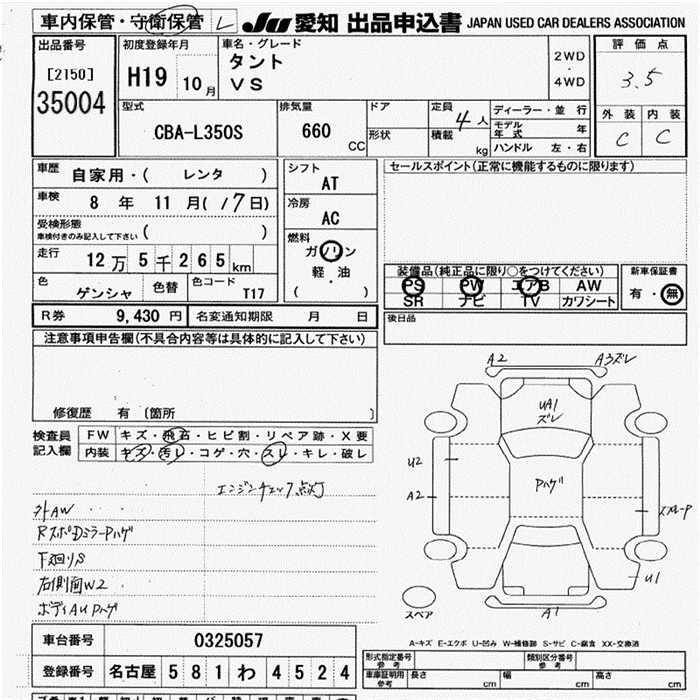 車内保管・守衛保管 L
JU 愛知 出品申込書 JAPAN USED CAR DEALERS ASSOCIATION
出品番号
[2150]
35004
初度登録年月
H19 10月
車名・グレード
タント
VS
2WD
・
4WD
評価点
3.5
外装 内装
C C
型式
CBA-L350S
排気量
660
CC
ドア
形状
定員
4人
積載
kg
ディーラー・並行
モデル年式 年
ハンドル 左・右
車歴
自家用・( レンタ )
車検
8 年 11 月( 17日)
受検形態
車検付きのみ記入して下さい ( )
走行
12万5千265km
色
ゲンシャ
色替
色コード
T17
シフト
AT
冷房
AC
燃料
ガソリン
・
軽・油
( )
セールスポイント(正常に機能するものに限ります)
装備品(純正品に限り○をつけてください)
PS PW エアB AW
SR ナビ TV カワシート
新車保証書
有・無
後日品
R券 9,430 円 名変通知期限 月 日
注意事項申告欄(不具合内容等は具体的に記入して下さい)
修復歴 有 〔箇所 〕
検査員
記入欄
FW キズ・飛石・ヒビ割・リペア跡・X要
内装 キズ・汚レ・コゲ・穴・スレ・キレ・破レ
エンジンチェック点灯
外AW
RスポDミラーPハゲ
下廻りS
右側面W2
ボディAUPハゲ
A2 A3ズレ
UA1
ズレ
U2
A2
Pハゲ
U1
A1
スペア
A-キズ E-エクボ U-凹み W-補修跡 S-サビ C-腐食 XX-交換済
車台番号 0325057
登録番号 名古屋 581 わ 4524
形式指定番号
参考
類別区分番号
参考
車庫証明用
参考
長さ cm 幅 cm 高さ cm